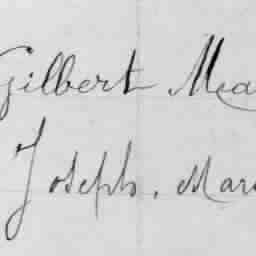 Gilbert Mea
Joseph. Mar